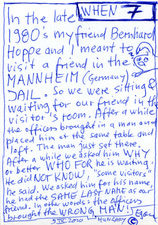 WHEN 7
In the late
1980's my friend Bernhard
Hoppe and I meant to
visit a friend in the
MANNHEIM (Germany)
JAIL. So we were sitting &
waiting for our friend in the
visitor's room. After a while
the officers brought in a man and
placed him at the same table and
left. The man just set there.
After a while we asked him WHY
or better WHO FOR he is waiting.
He did NOT KNOW, "some visitors"
he said. We asked him for his name,
he had the SAME LAST NAME as our
friend. In other words: the officers
brought the WRONG MAN!
2010 Hungary